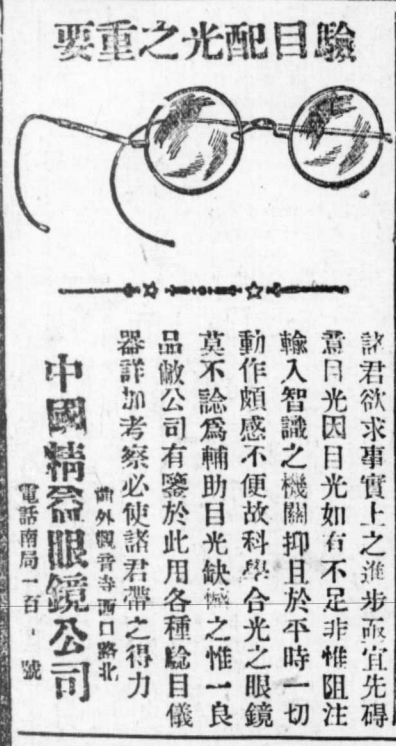 驗目配光之重要
諸君欲求事實上之進步亟宜先礙
意目光因目光如有不足非惟阻注
輸入智識之機關抑且於平時一切
動作頗感不便故科學合光之眼鏡
莫不諗爲輔助目光缺憾之惟一良
品敝公司有鑒於此用各種驗目儀
器詳加考察必使諸君帶之得力
中國精益眼鏡公司
前外觀音寺西口路北
電話南局一百 號